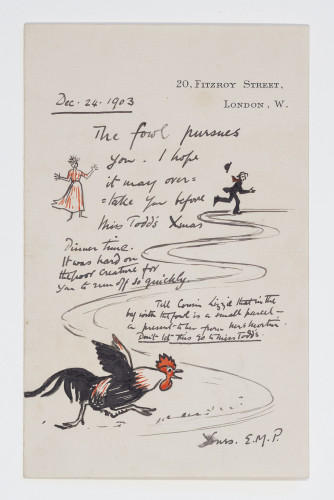 20, Fitzroy Street,
London, W.
Dec. 24. 1903
The fowl pursues
you. I hope
it may over=
=take you before
Miss Todd's Xmas
Dinner time.
It was hard on
the poor creature for
you to run off so quickly.
Tell Cousin Lizzie that in the
by with the fowl is a small parcel —
a present to her from
Don't let this go to Miss Todd's
Yours. E.M.P.